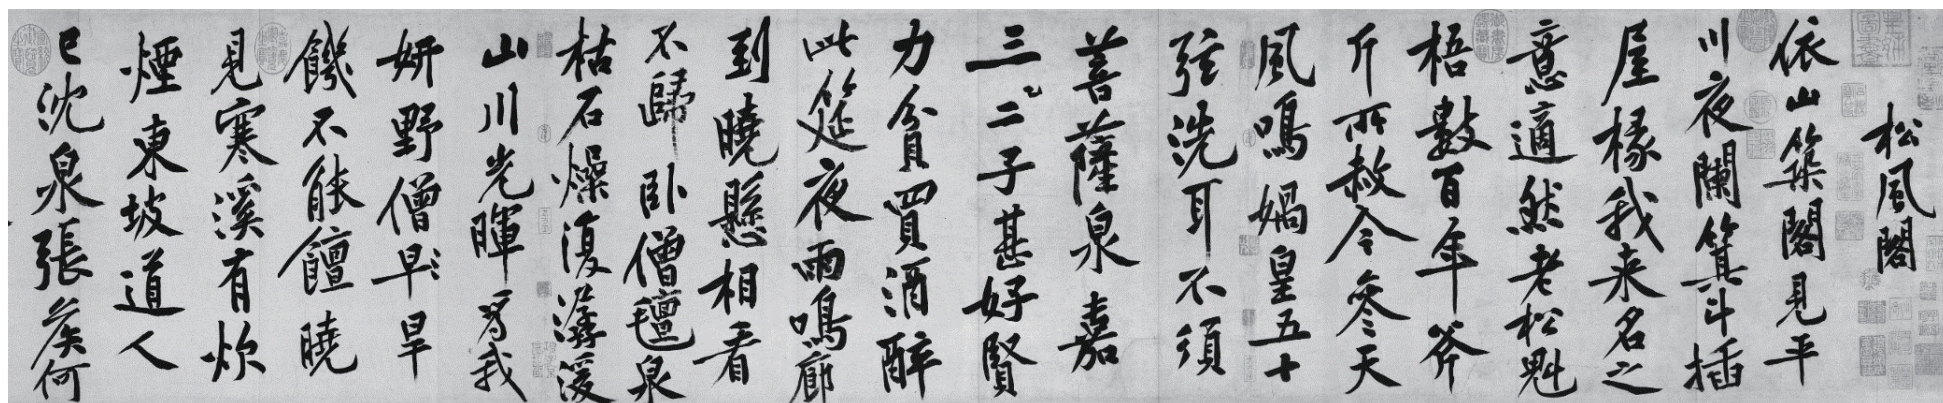 松風閣
依山築閣見平
川夜闌箕斗插
屋椽我来名之
意適然老松魁
梧數百年斧
斤所赦今參天
風鳴媧皇五十
弦洗耳不須
菩薩泉嘉
三二子甚好賢
力貧買酒醉
此筵夜雨鳴廊
到曉懸相看
不歸臥僧氈泉
枯石燥復潺湲
山川光暉為我
妍野僧早旱
饑不能饘曉
見寒溪有炊
煙東坡道人
已沈泉張矦何